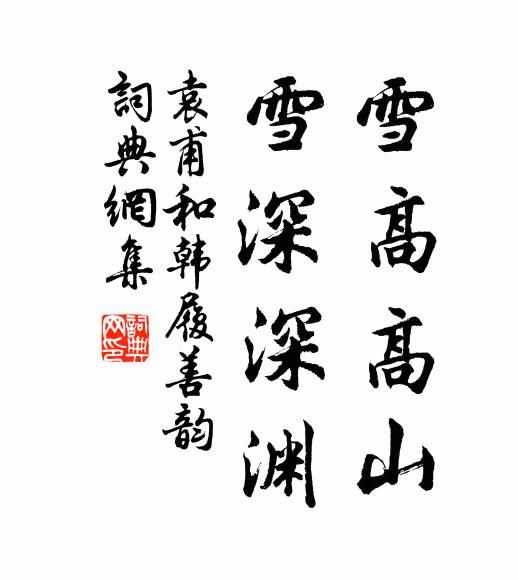 雪高高山
雪深深渊
袁甫和韩履善韵
詞典網集
詞典网印